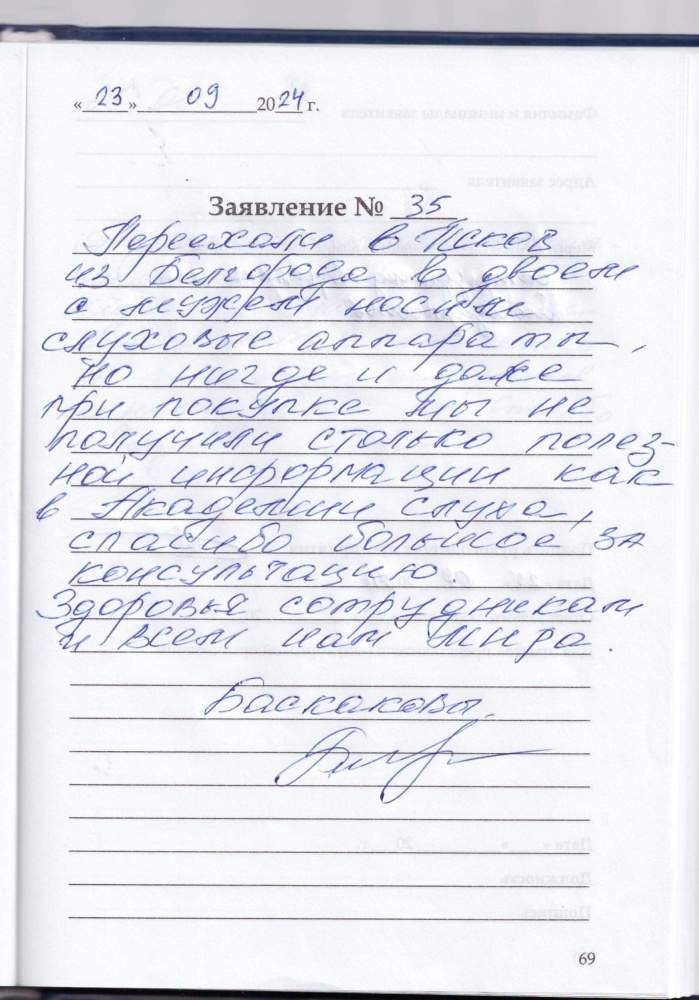 « 23 » 09 2024 г.
Заявление № 35
Переехали в Псков
из Белгорода в двоем
с мужем носим
слуховые аппараты,
но нигде и даже
при покупке мы не
получили столько полез-
ной информации как
в Академии Слуха,
спасибо большое за
консультацию.
Здоровья сотрудникам
и всем нам Мира.
Баскаковы.
69